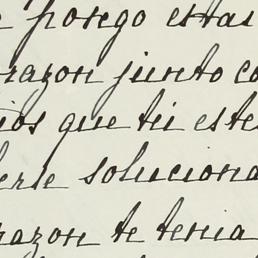 e pongo estas
razon junto co
ios que tú este
erle soluciona
razon te tenia